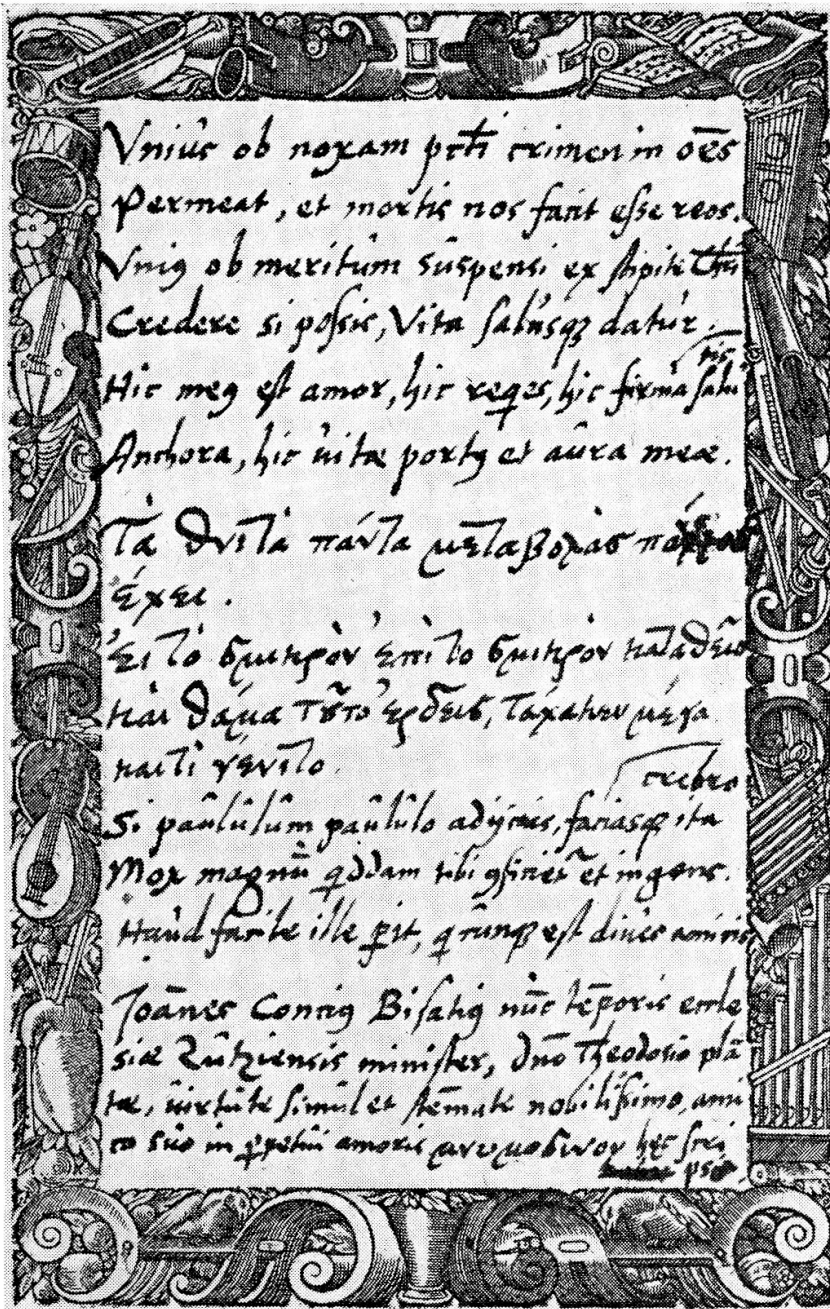 Vniûs ob noxam pcti crimen in oēs
Permeat, et mortis nos facit esse reos.
Vniꝯ ob meritûm sûspensi ex stipite Chri
Credere si possis, Vita salûsqꝫ datûr.
Hic meꝯ est amor, hic reqes, hic firma salû
tis
Anchora, hic ûitæ portꝯ et aûra meæ.
Τὰ θνιτὰ πάντα μεταβολὰς
ἔχει.
Ἐι τὸ σμικρὸν ἐπὶ το σμικρὸν καταθεῖο
καὶ θαμα τȣ̃το ἐρδεις, τάχα κεν μέγα
και τι γενιτο.
crebro
Si paûlûlûm paûlûlo adijcies, faciasqꝫ ita
Mox magnū qddam tibi ꝯficiet et ingens.
Haûd facile ille ꝑit, q cûnqꝫ est diûes amicis
Joānes Contiꝯ Bisatiꝯ nūc tēporis eccle
siæ Zûtziensis minister, dno Theodosio plā
tæ, ûirtûte simûl et stēmate nobilissimo, ami
co sûo in ꝑpetûi amoris μνυμοσινον hęc scri
psit.